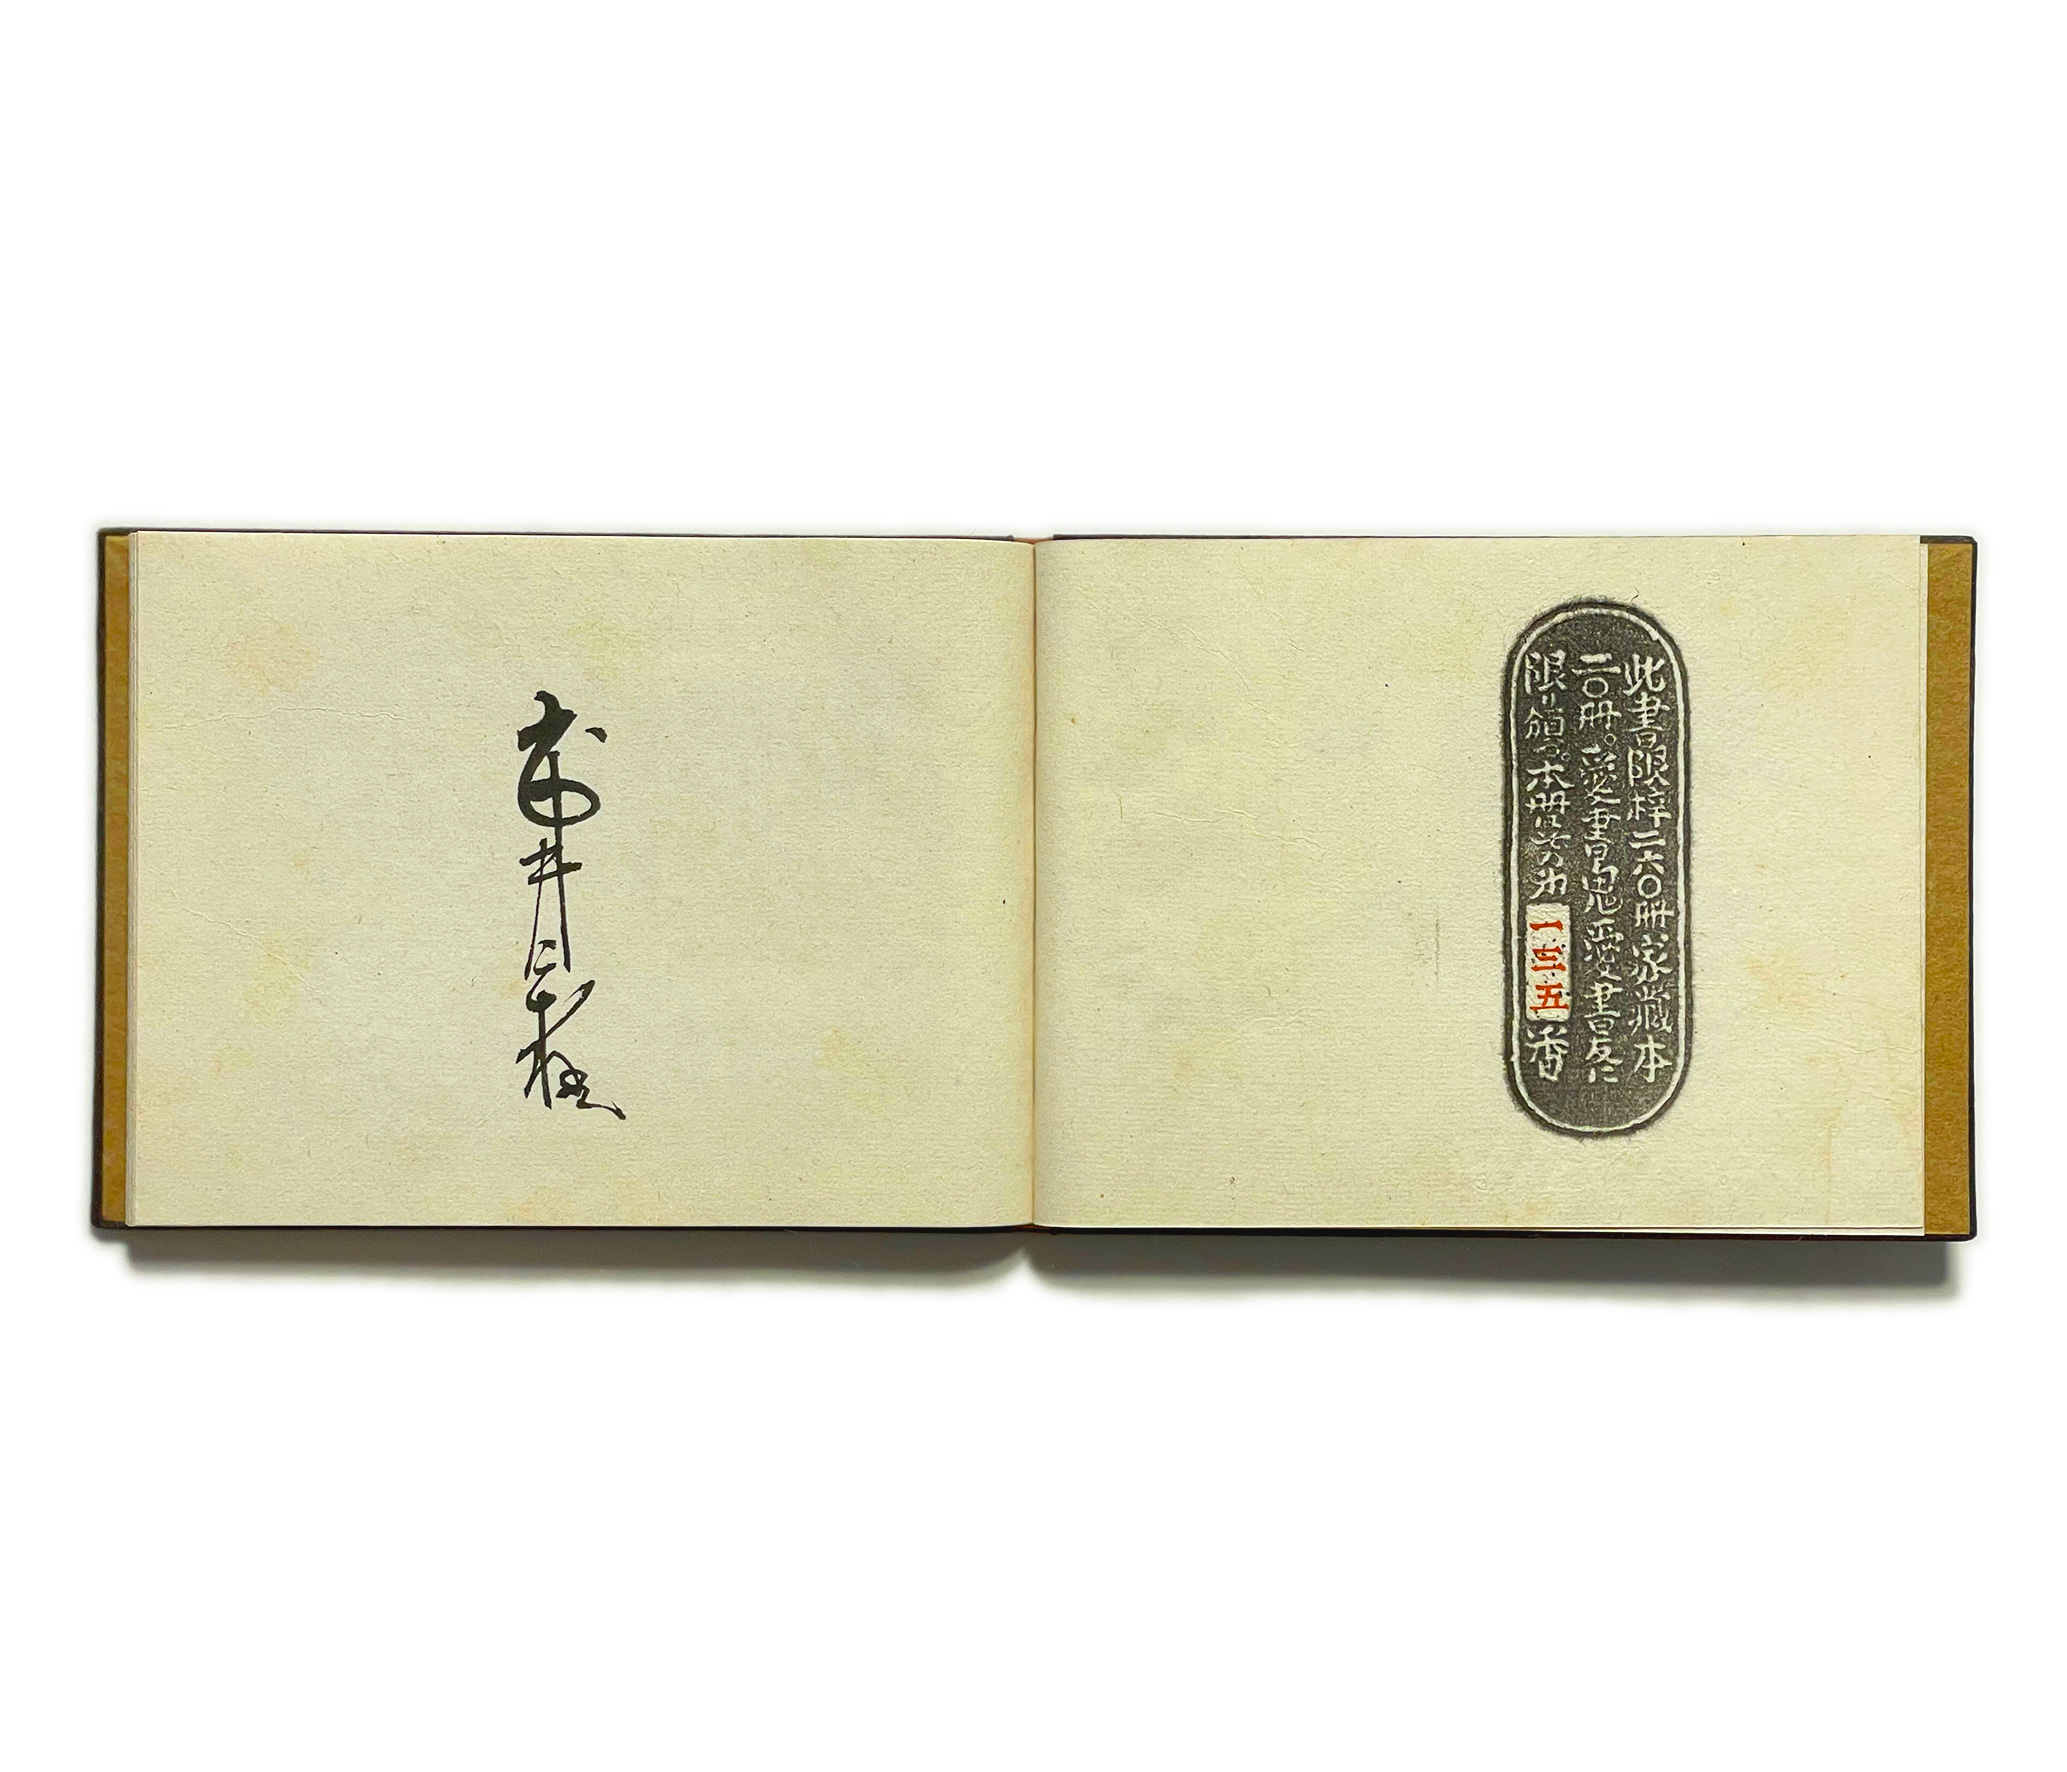 此書限梓二六〇冊家蔵本
二〇冊。愛書鬼愛書友に
限り頒つ。本冊はその第
一三五
番
武井武雄